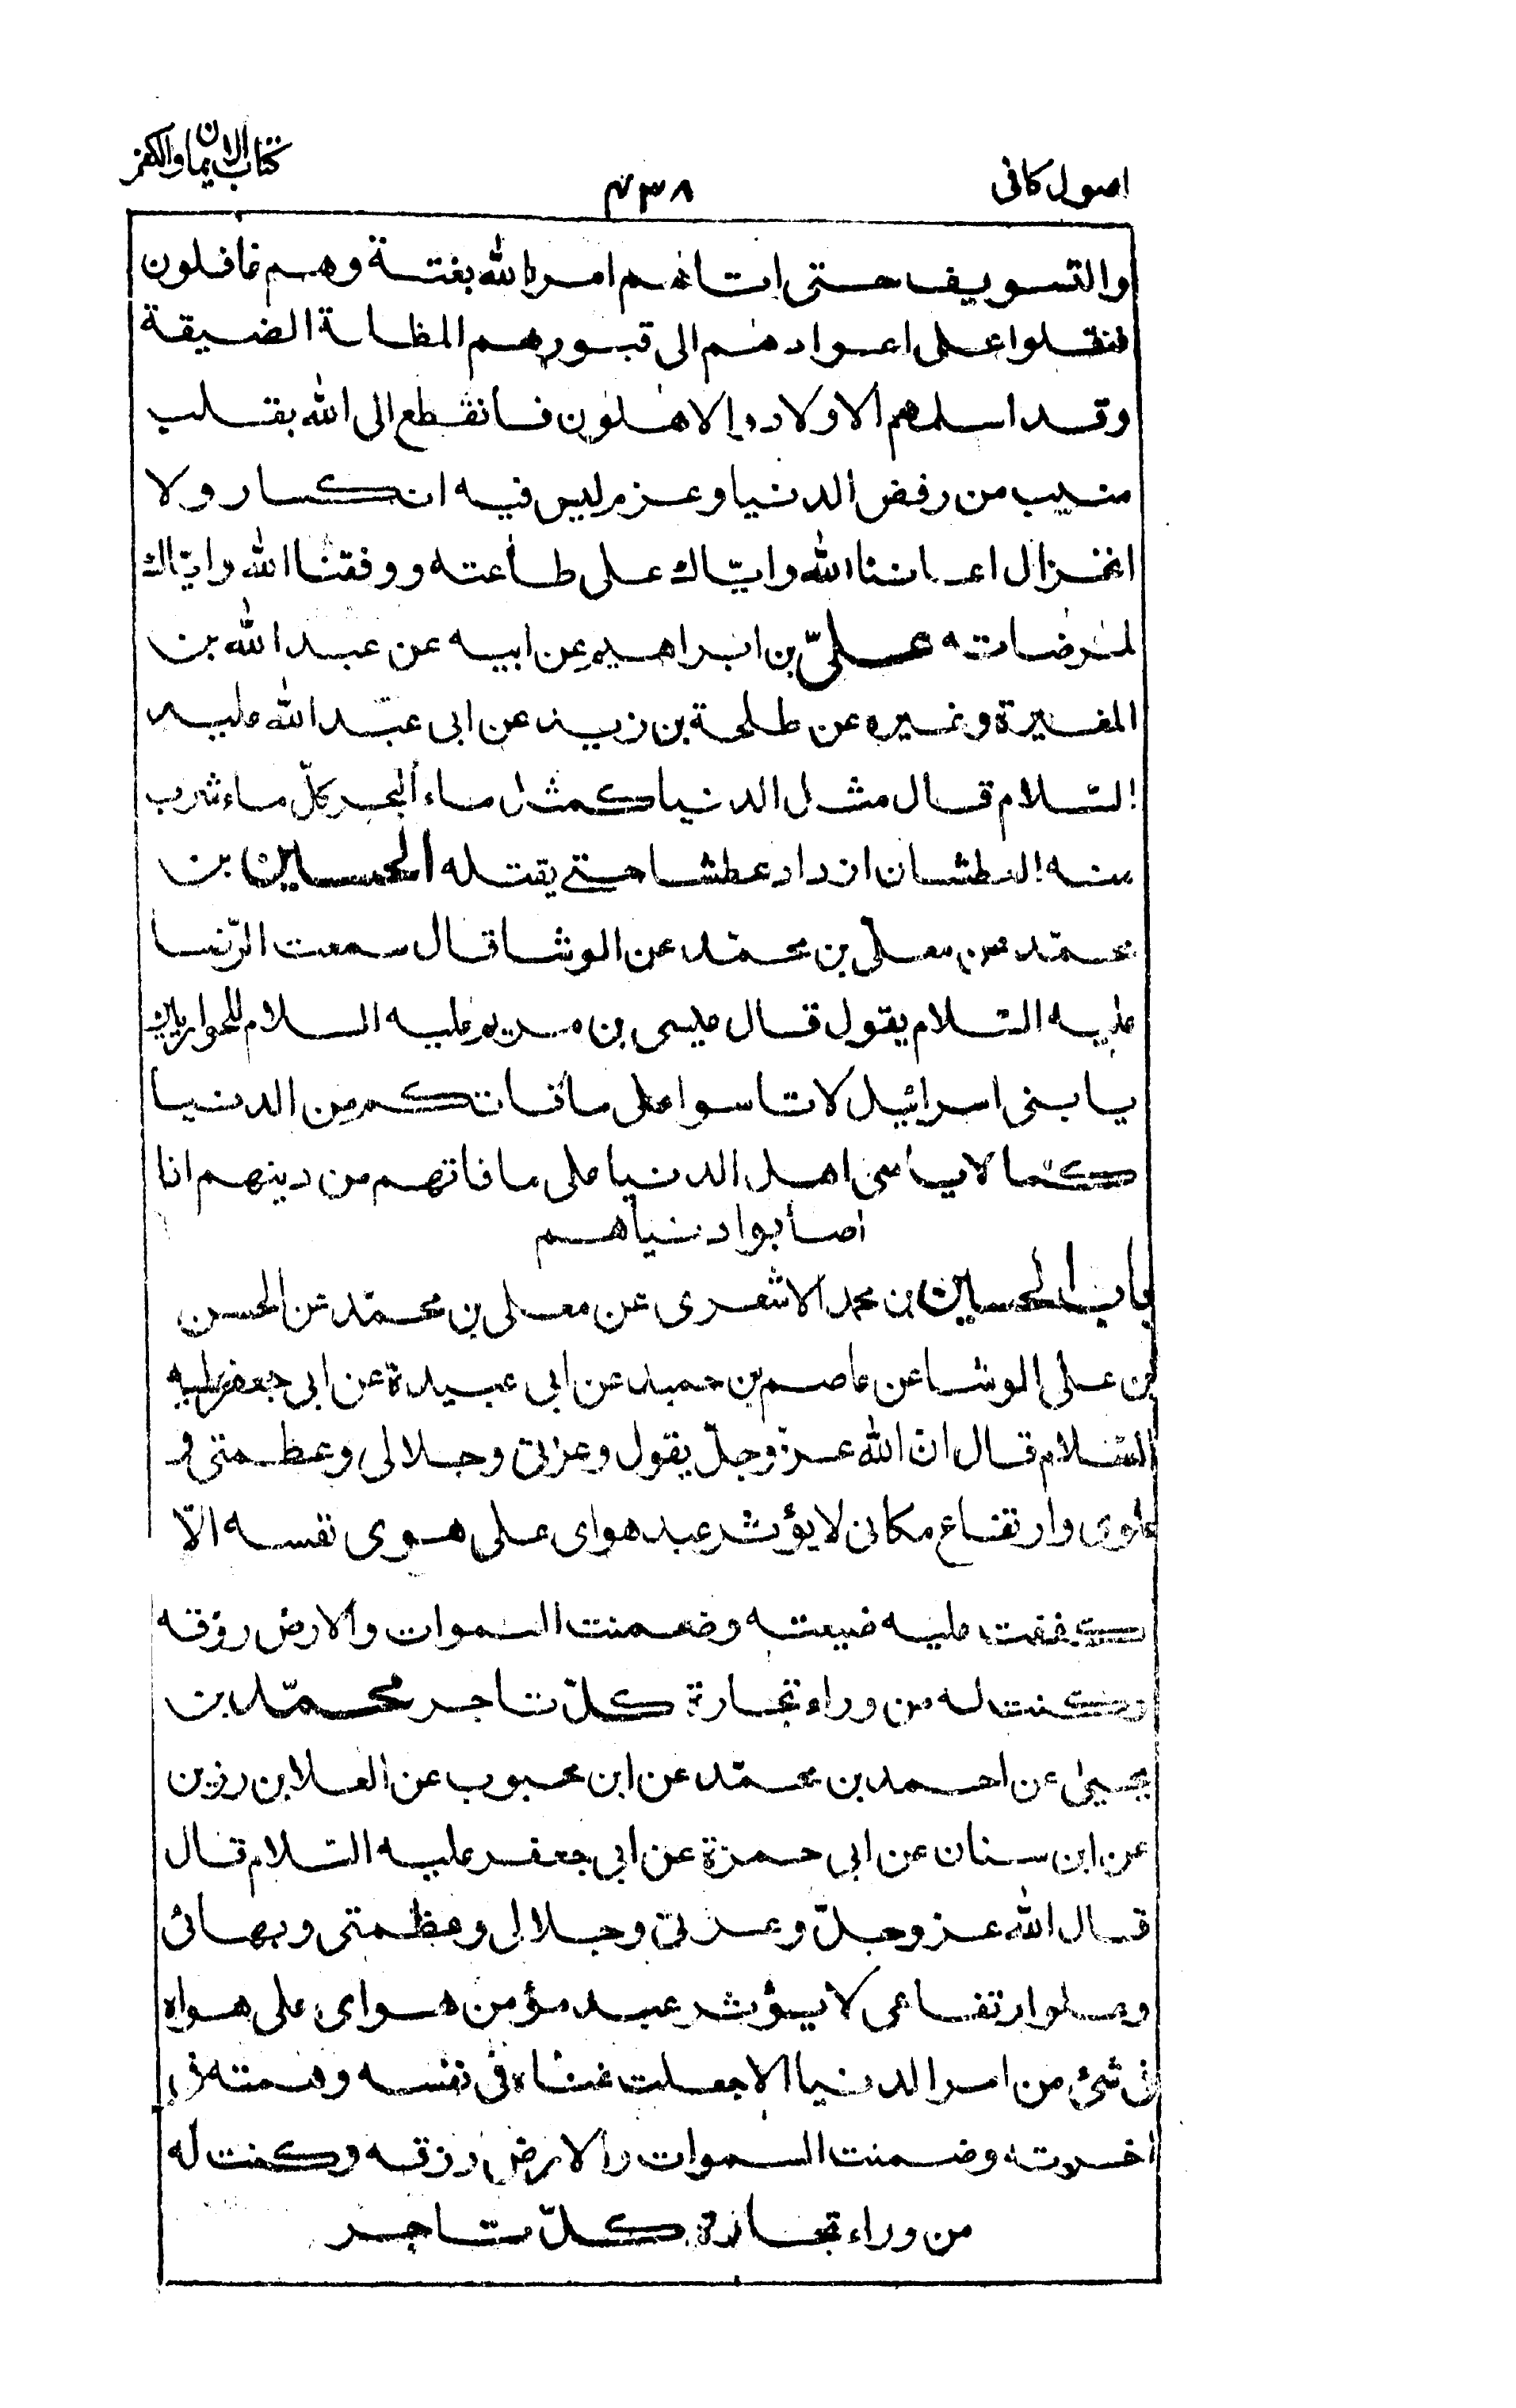 اصول کافی
۴۳۸
كتاب الایمان والكفر
والتسويف حتى اتاهم امر الله بغتة وهم غافلون
فنقلوا على اعوادهم الى قبورهم المظلمة الضيقة
وقد اسلمهم الاولاد والاهلون فانقطع الى الله بقلب
منيب من رفض الدنيا وعزم ليس فيه انكسار ولا
انخزال اعاننا الله واياك على طاعته ووفقنا الله وايّاك
لمرضاته علىّ بن ابراهيم عن ابيه عن عبد الله بن
المغيرة وغيره عن طلحة بن زيد عن ابى عبد الله عليه
السّلام قال مثل الدنيا كمثل ماء البحر كلّ ماء شرب
منه العطشان ازداد عطشا حتى يقتله الحسين بن
محمّد عن معلى بن محمّد عن الوشا قال سمعت الرّضا
عليه السّلام يقول قال عيسى بن مريم عليه السلام للحواريين
يا بنى اسرائيل لا تاسوا على ما فاتكم من الدنيا
كما لا يأسى اهل الدنيا على ما فاتهم من دينهم اذا
اصابوا دنياهم
باب الحسين بن محمد الاشعرى عن معلى بن محمّد عن الحسن
بن على الوشا عن عاصم بن حميد عن ابى عبيدة عن ابى جعفر عليه
السّلام قال ان الله عزّ وجلّ يقول وعزتى وجلالى وعظمتى و
علوى وارتفاع مكانى لا يؤثر عبد هواى على هوى نفسه الّا
كففت عليه ضيعته وضمنت السّموات والارض رزقه
وكنت له من وراء تجارة كلّ تاجر محمّد بن
يحيى عن احمد بن محمّد عن ابن محبوب عن العلا بن رزين
عن ابن سنان عن ابى حمزة عن ابى جعفر عليه السّلام قال
قال الله عز وجلّ وعزتى وجلالى وعظمتى وبهائى
وعلو ارتفاعى لا يؤثر عبد مؤمن هواى على هواه
فى شئ من امر الدنيا الا جعلت غناه فى نفسه وهمته فى
اخرته وضمنت السموات والارض رزقه وكنت له
من وراء تجارة كلّ تاجر